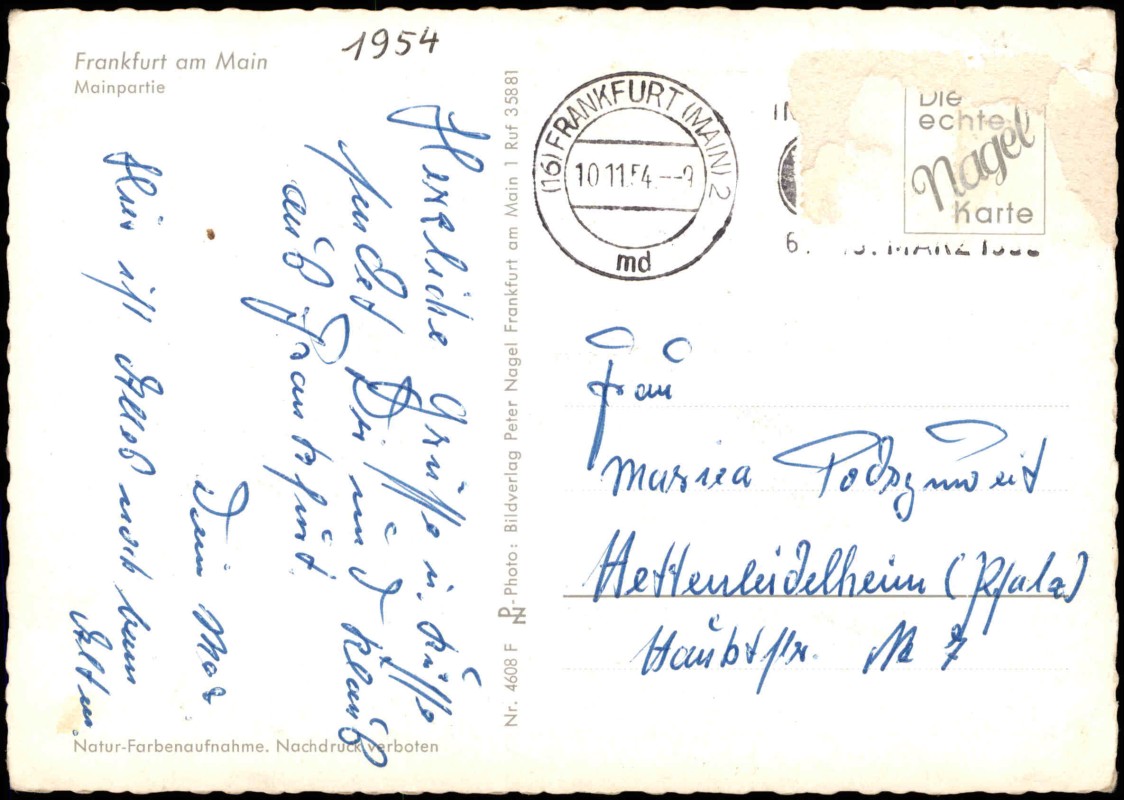 Frankfurt am Main
Mainpartie
1954
Herzliche Grüße u. Küsse
sendet Dir und Klauß
auß Frankfurt.
Dein Max
Hier ist Alleß noch beim
Alten.
Natur-Farbenaufnahme. Nachdruck verboten
Nr. 4608 F PN-Photo: Bildverlag Peter Nagel Frankfurt am Main 1 Ruf 35881
(16) FRANKFURT (MAIN) 2
10.11.54.--9
md
Die
echte
Nagel
Karte
6. MÄRZ
Frau
Marria Podszuweit
Hettenleidelheim (Pfalz)
Haubtstr. Nr 7